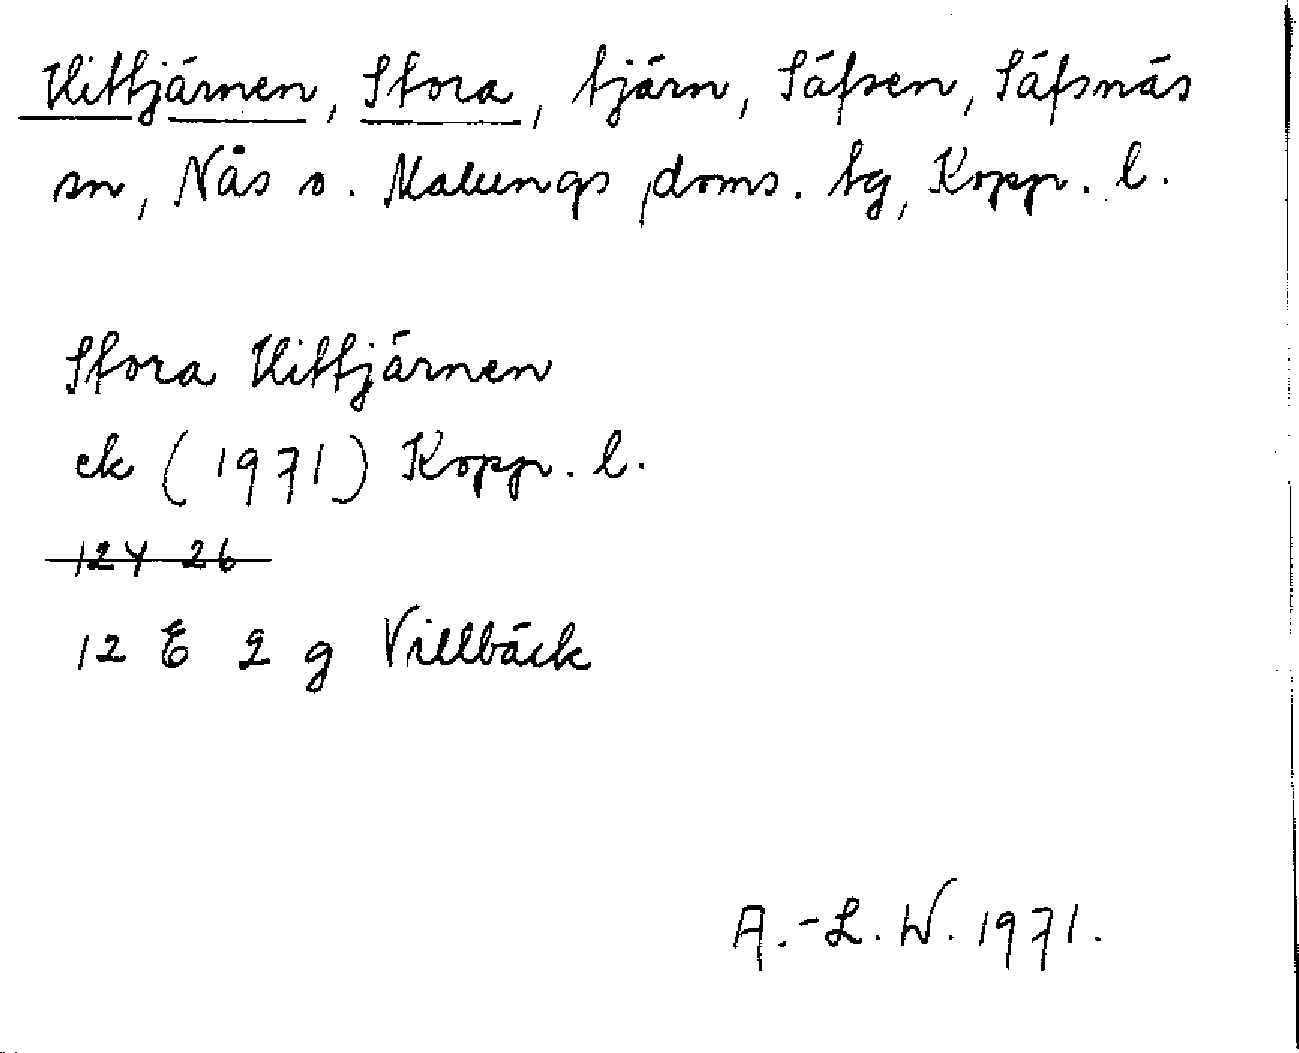 Vittjärnen, Stora, tjärn, Säfsen, Säfsnäs
sn, Nås o. Malungs doms. tg, Kopp. l.
Stora Vittjärnen
ek (1971) Kopp. l.
124 26
12 E 2 g Villbäck
A.-L. W. 1971.